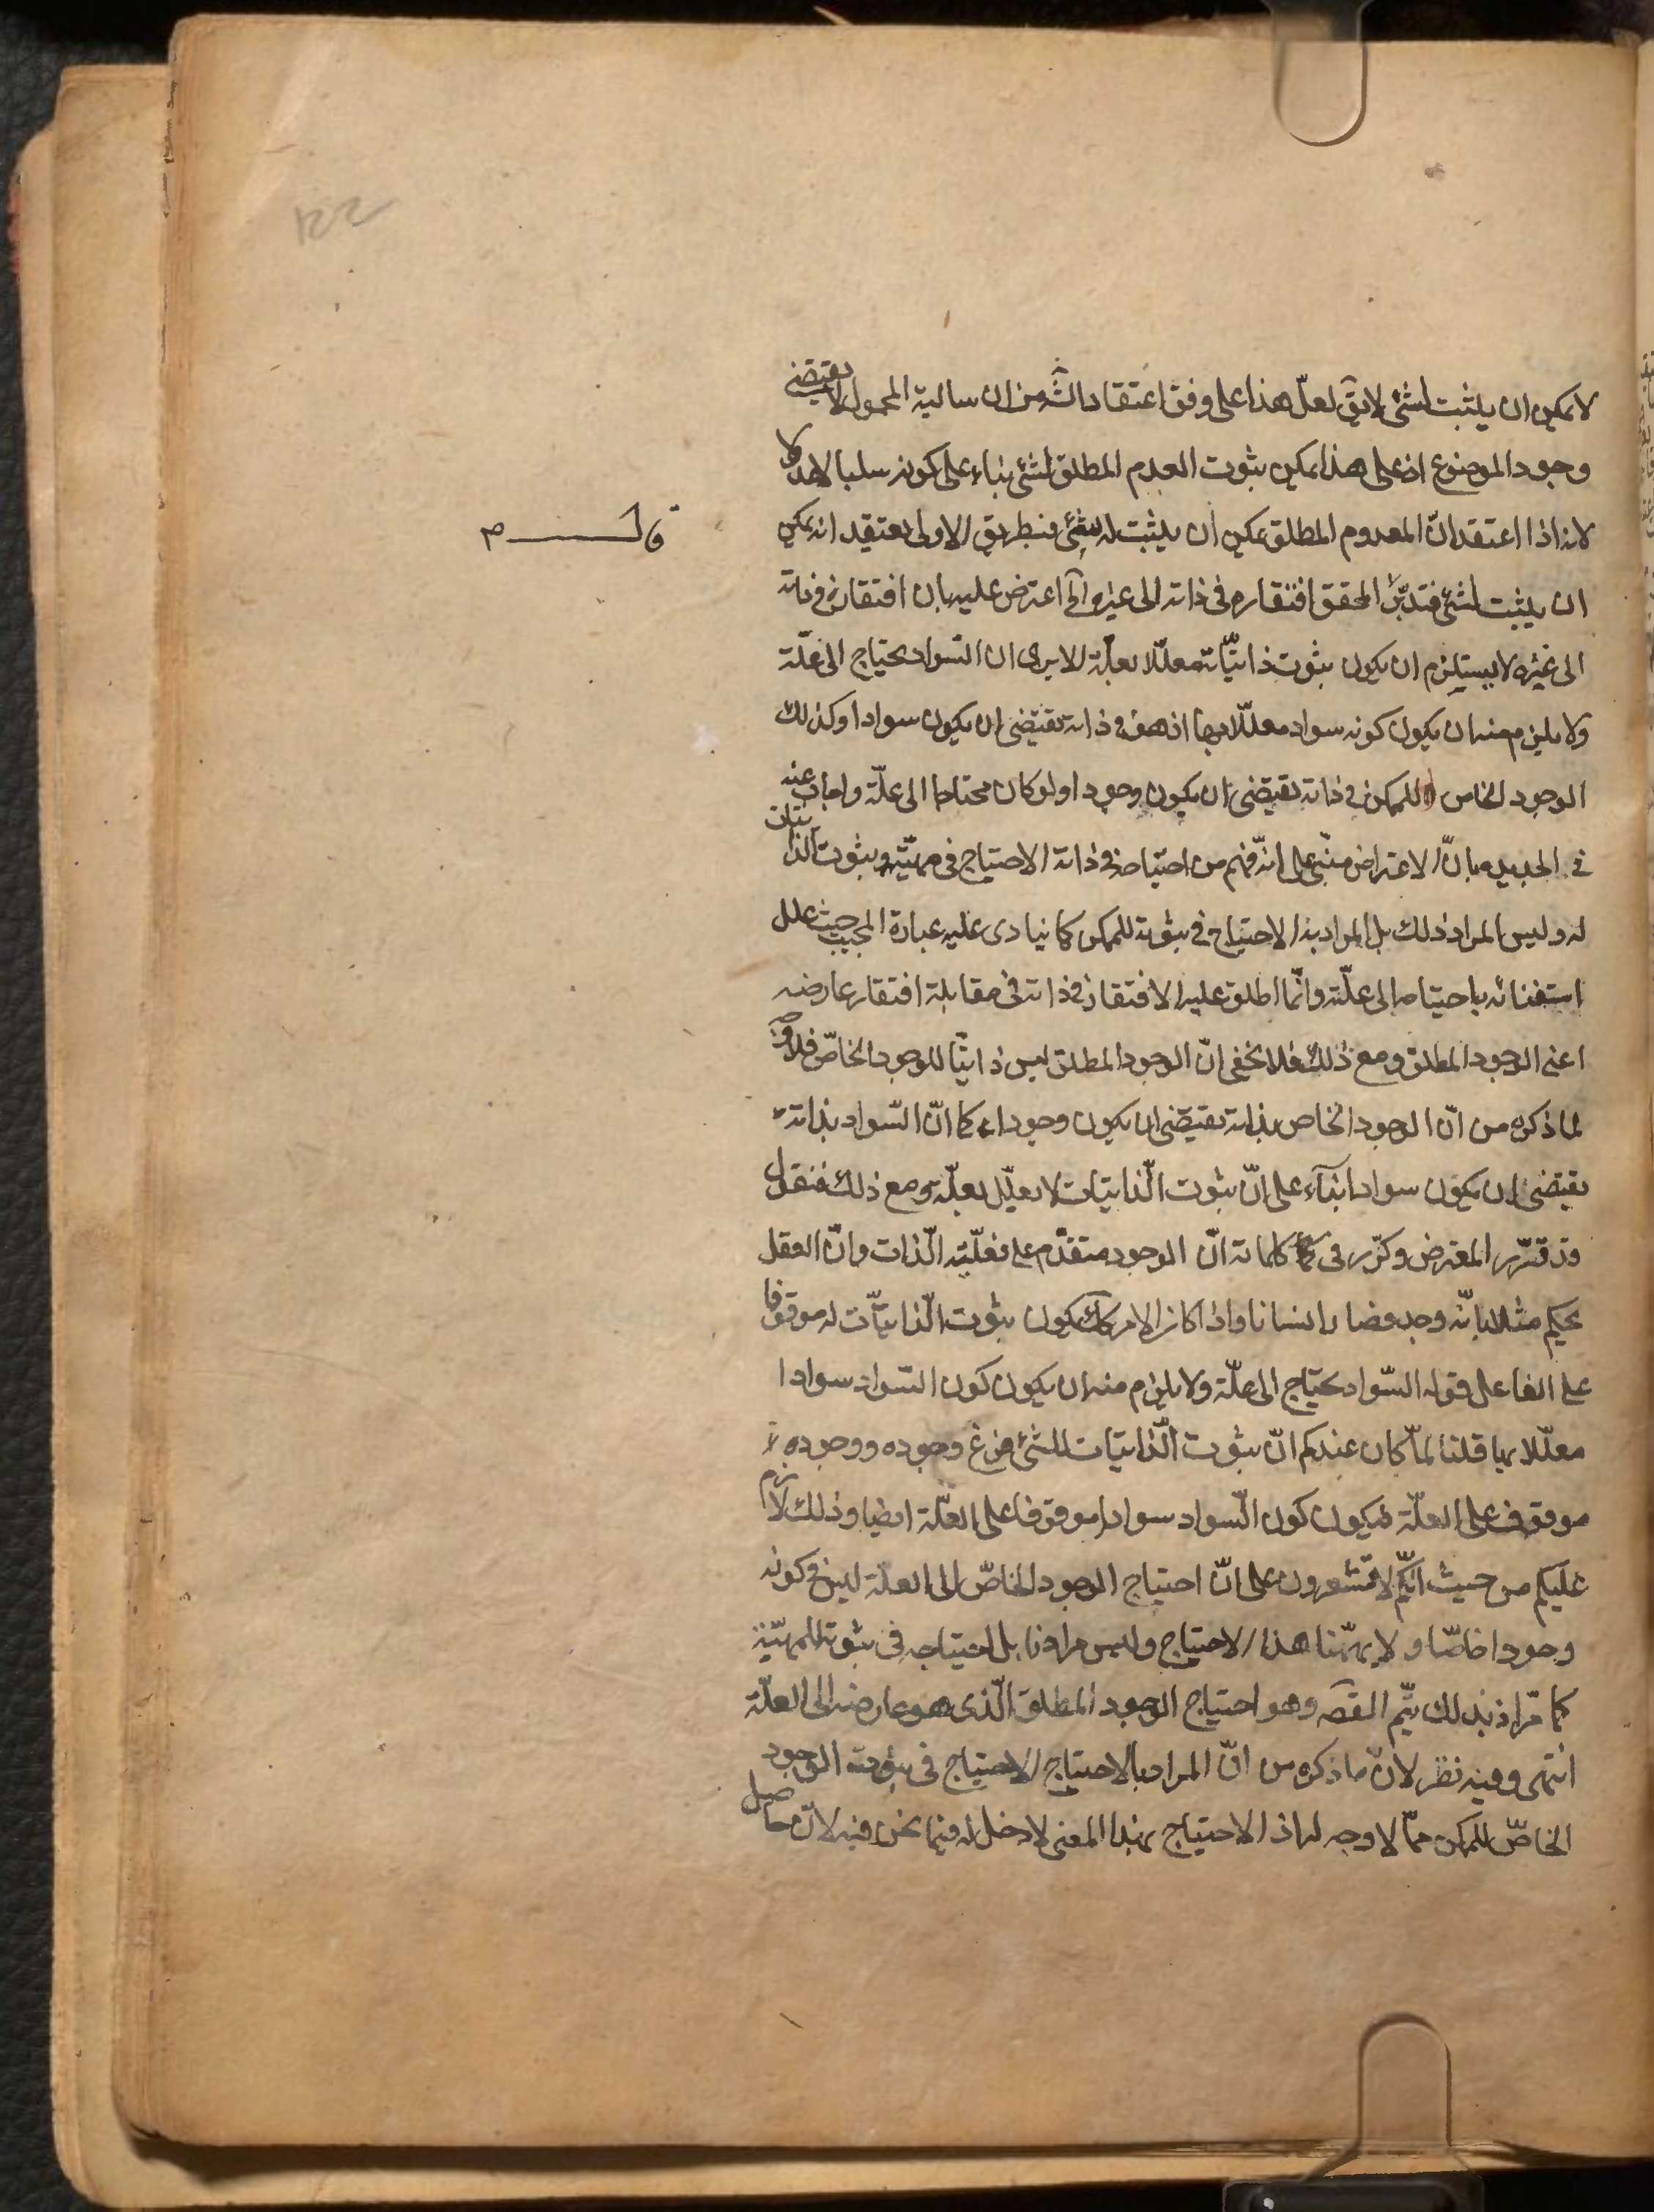 لا يمكن ان يثبت لشئ لا يق لعلّ هذا على وفق اعتقاد الشه من ان سالبة المحمول لا يقتضى
وجود الموضوع اذ على هذا يمكن ثبوت العدم المطلق لشئ بناء على كونه سلبا
لانه اذا اعتقد انّ المعدوم المطلق يمكن ان يثبت له شئ فبطريق الاولى يعتقد انه يمكن
ان يثبت لشئ فتدبّر المحقق افتقاره فى ذاته الى غيره آه اعترض عليه بان افتقاره فى ذاته
الى غيره لا يستلزم ان يكون ثبوت ذاتيّاته معلّلا بعلّة الا يرى ان السّواد يحتاج الى علّة
ولا يلزم منه ان يكون كونه سوادا معلّلا بها اذ هو فى ذاته يقتضى ان يكون سوادا وكذلك
الوجود الخاص للممكن فى ذاته يقتضى ان يكون وجودا ولو كان محتاجا الى علّة واجاب عنه
فى الجديد بانّ الاعتراض مبنى على انه فهم من احتياجه فى ذاته الاحتياج فى مهيّته وثبوت الذاتيات
له وليس المراد ذلك بل المراد بذا الاحتياج فى ثبوته للممكن كما ينادى عليه عبارة المجيب حيث علل
استغنائه باحتياجه الى علّته وانّما اطلق عليه الافتقار فى ذاته فى مقابلة افتقار عارضه
اعنى الوجود المطلق ومع ذلك فلا يخفى انّ الوجود المطلق ليس ذاتيّا للوجود الخاصّ فلا وجه
لما ذكره من انّ الوجود الخاص بذاته يقتضى ان يكون وجودا كما انّ السّواد بذاته
يقتضى ان يكون سوادا بناء على انّ ثبوت الّذاتيات لا يعلّل بعلّة ومع ذلك فنقول
قد قرّر المعترض وكرّر فى كلماته انّ الوجود متقدّم على فعليّة الّذات وانّ العقل
يحكم مثلا بانّه وجد فصار انسانا واذا كان الامر كك يكون ثبوت الّذاتيّات له موقوفا
على الفاعل قوله السّواد يحتاج الى علّة ولا يلزم منه ان يكون كون السّواد سوادا
معلّلا بها قلنا لمّا كان عندكم انّ ثبوت الّذاتيّات للشئ فرع وجوده ووجوده
موقوف على العلّة فيكون كون السّواد سوادا موقوفا على العلّة ايضا وذلك لازم
عليكم من حيث انّكم لا تشعرون على انّ احتياج الوجود الخاصّ الى العلّة ليس فى كونه
وجودا خاصّا ولا يهمّنا هذا الاحتياج وليس مرادنا بل احتياجه فى ثبوته للمهيّة
كما مرّ اذ بذلك يتمّ المقصّه وهو احتياج الوجود المطلق الّذى هو عارضه الى العلّة
انتهى وفيه نظر لانّ ما ذكره من انّ المراد بالاحتياج الاحتياج فى ثبوته الوجود
الخاصّ للممكن ممّا لا وجه له اذ الاحتياج بهذا المعنى لا دخل له فيما نحن فيه لانّ حاصل